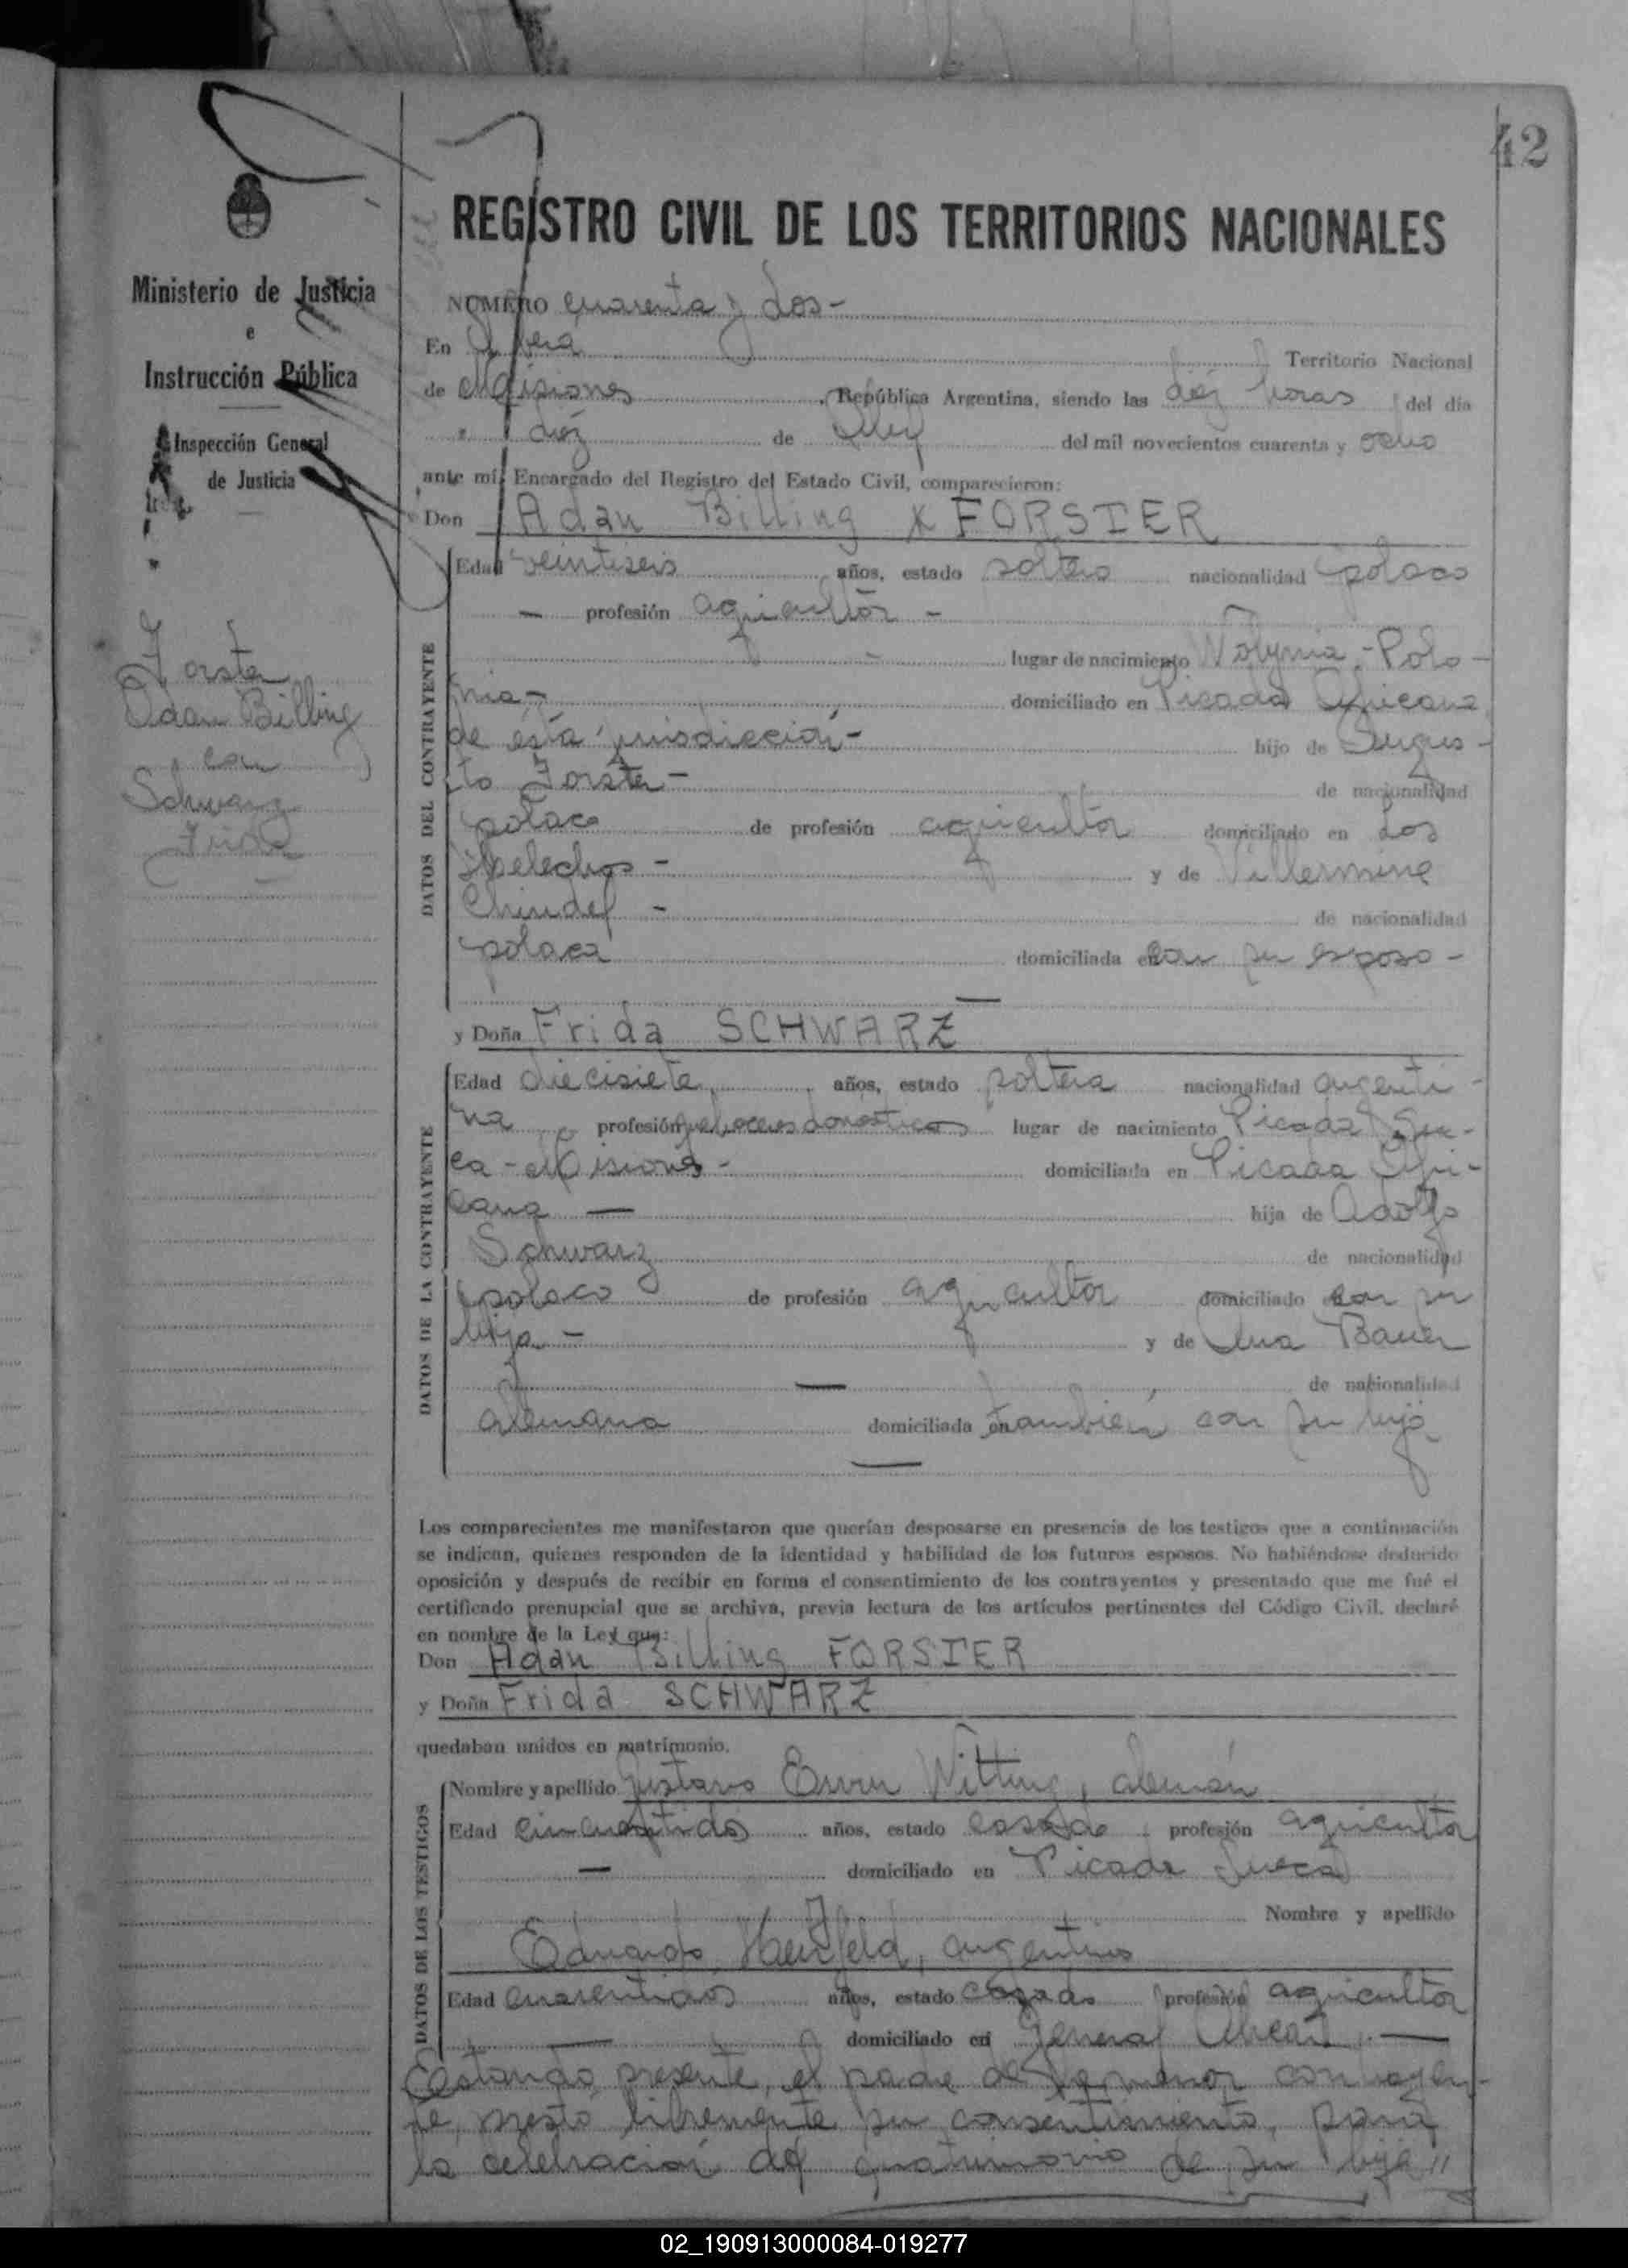 42
REGISTRO CIVIL DE LOS TERRITORIOS NACIONALES
Ministerio de Justicia
e
Instrucción Pública
Inspección General
de Justicia
Forster
Adan Billing
con
Schwarz
Frida
NÚMERO cuarenta y dos-
En Oberá Territorio Nacional
de Misiones, República Argentina, siendo las diez horas del día
diéz de del mil novecientos cuarenta y ocho
ante mí, Encargado del Registro del Estado Civil, comparecieron:
Don Adan Billing FORSTER
DATOS DEL CONTRAYENTE
Edad veintiseis años, estado soltero nacionalidad polaco
— profesión agricultor -
lugar de nacimiento Wolynia-Polo-
nia- domiciliado en Picada Africana
de esta jurisdicción- hijo de Augus-
to Forster- de nacionalidad
polaco de profesión agricultor domiciliado en Los
Helechos- y de Villermine
- de nacionalidad
polaca domiciliada con su esposo -
y Doña Frida SCHWARZ
DATOS DE LA CONTRAYENTE
Edad diecisiete años, estado soltera nacionalidad argenti-
na profesión quehaceres domesticos lugar de nacimiento Picada Sue-
ca - Misiones- domiciliada en Picada Afri-
cana — hija de Adolfo
Schwarz de nacionalidad
polaco de profesión agricultor domiciliado con su
hija - y de Ana Bauer
— de nacionalidad
alemana domiciliada en también con su hija
Los comparecientes me manifestaron que querían desposarse en presencia de los testigos que a continuación
se indican, quienes responden de la identidad y habilidad de los futuros esposos. No habiéndose deducido
oposición y después de recibir en forma el consentimiento de los contrayentes y presentado que me fué el
certificado prenupcial que se archiva, previa lectura de los artículos pertinentes del Código Civil, declaré
en nombre de la Ley que:
Don Adan Billing FORSTER
y Doña Frida SCHWARZ
quedaban unidos en matrimonio.
DATOS DE LOS TESTIGOS
Nombre y apellido Gustavo Witting, alemán
Edad cincuentidos años, estado casado profesión agricultor
— domiciliado en Picada Sueca
Nombre y apellido
Eduardo, argentino
Edad cuarentidos años, estado casado profesión agricultor
— domiciliado en General Alvear. —
Estando presente, el padre de la menor contrayen-
te, prestó libremente su consentimiento, para
la celebración del matrimonio de su hija //
02_190913000084-019277